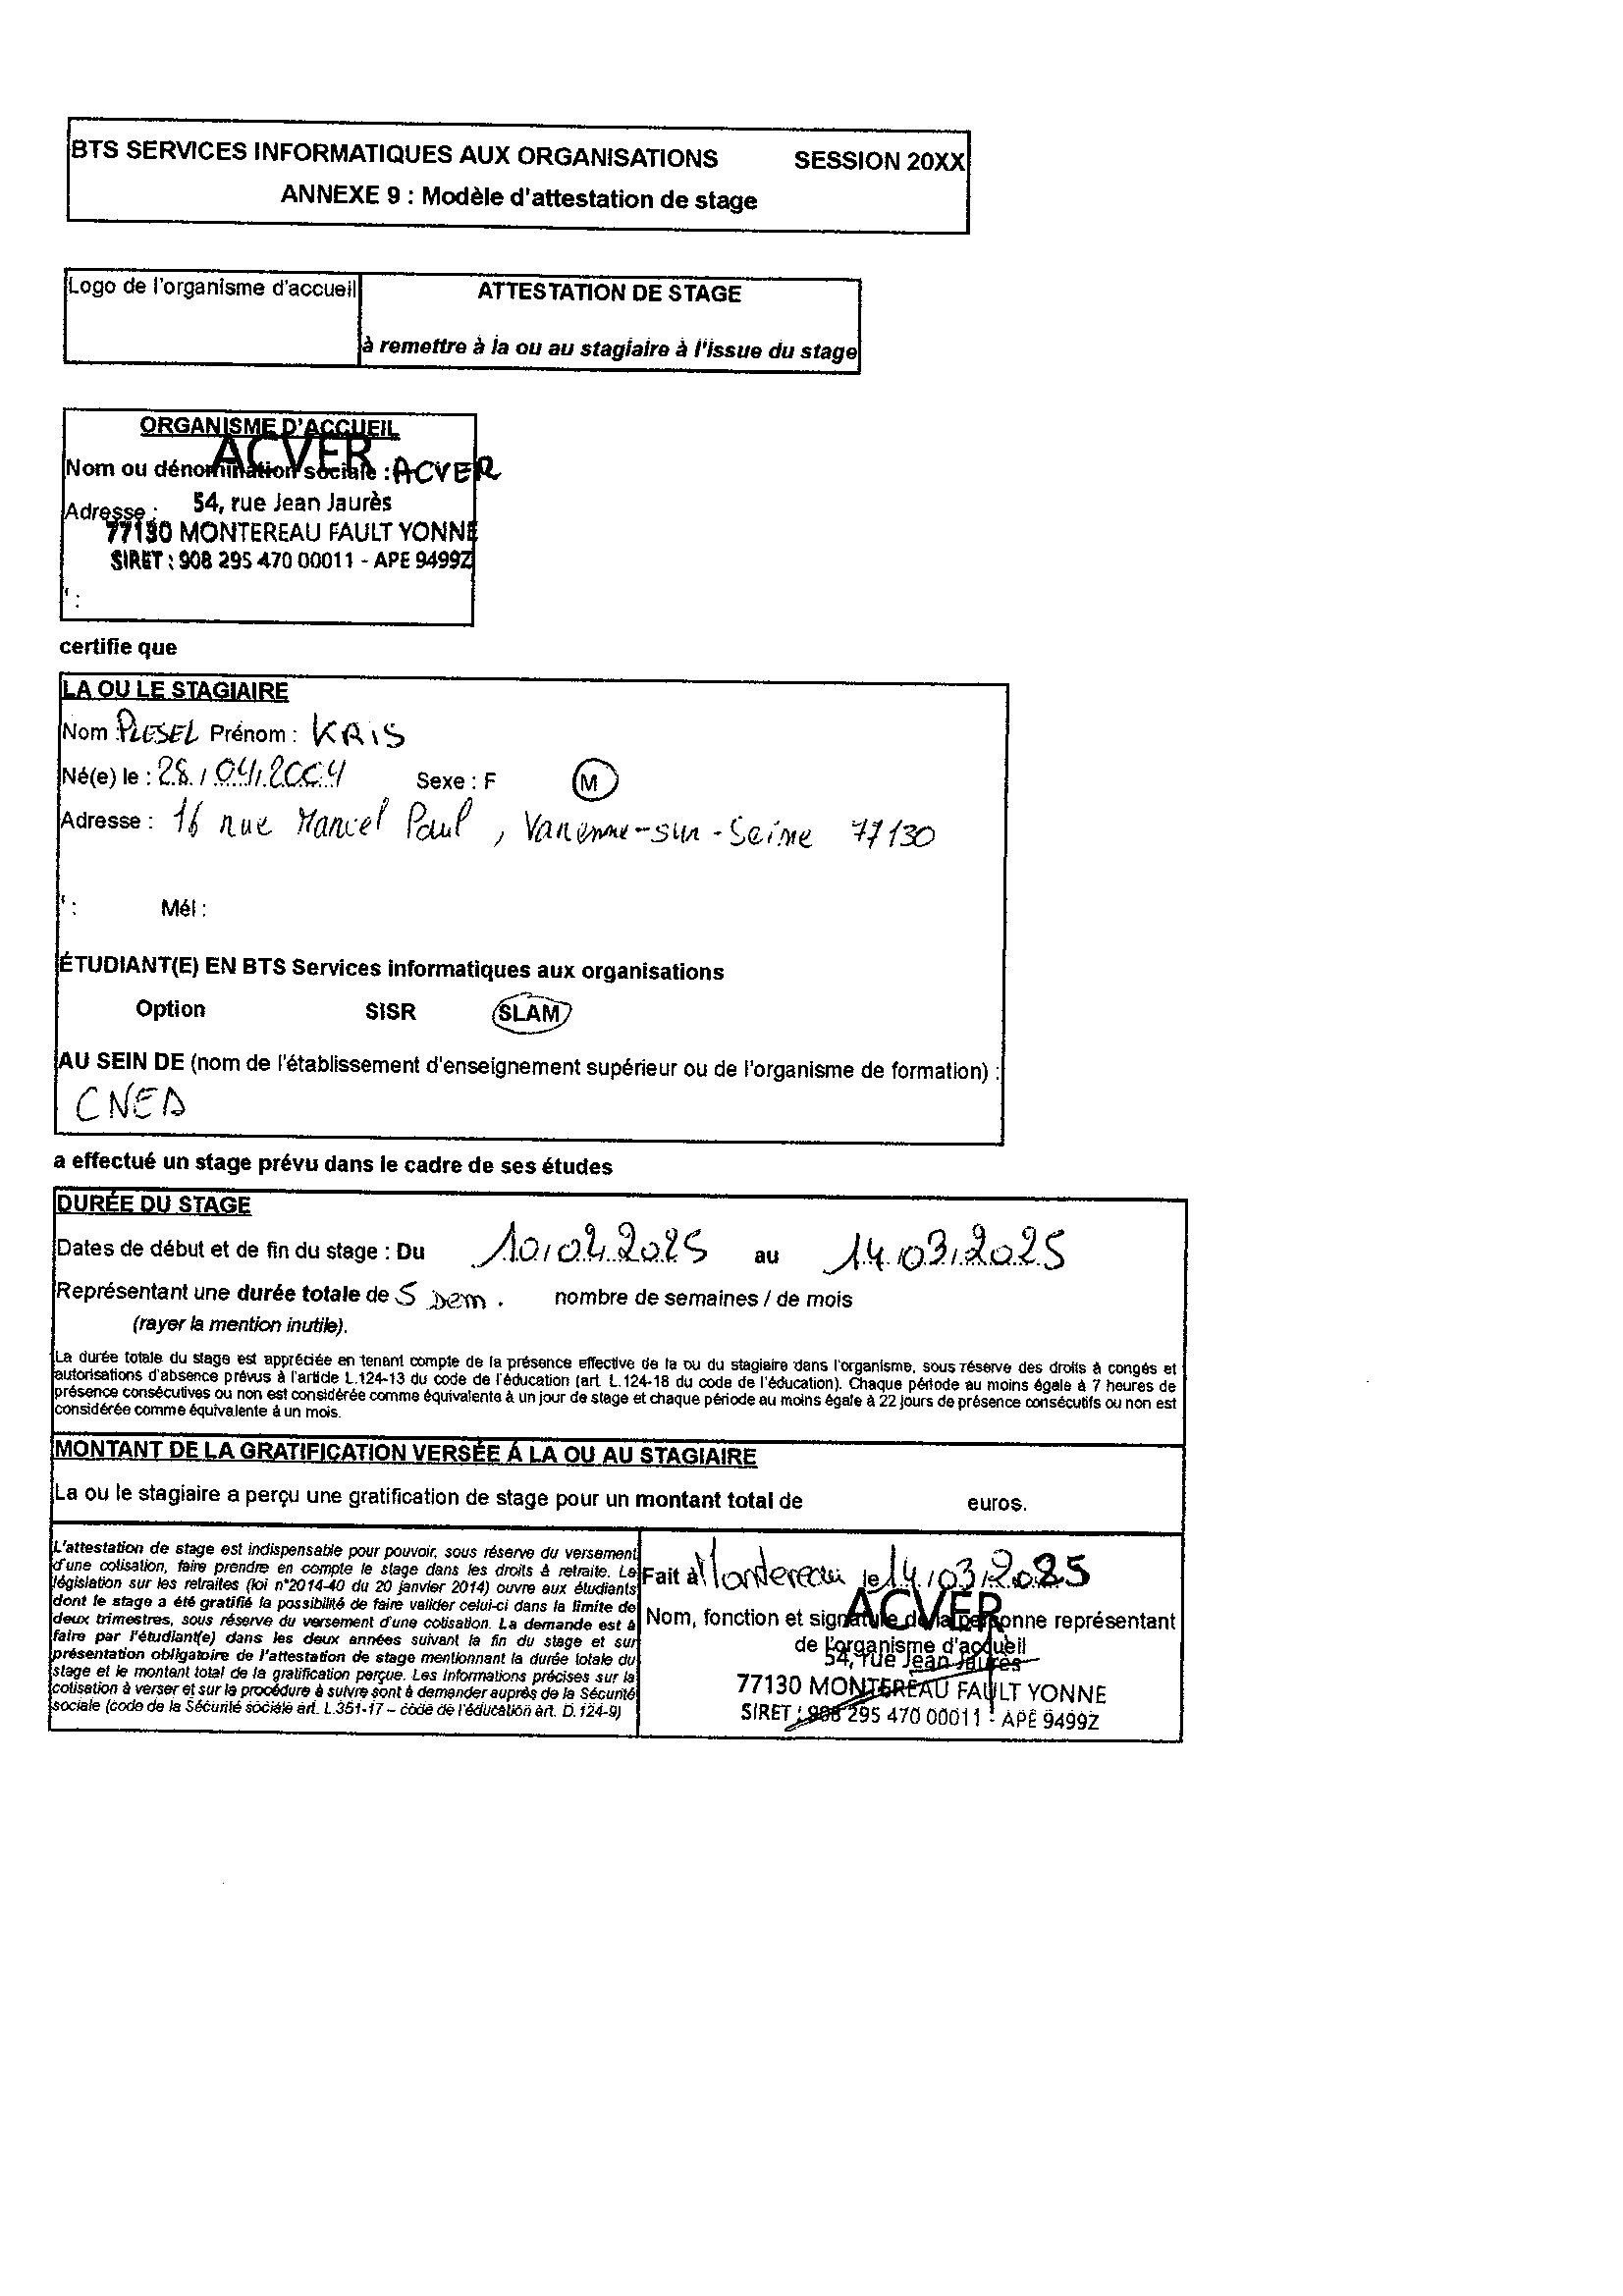 BTS SERVICES INFORMATIQUES AUX ORGANISATIONS SESSION 20XX
ANNEXE 9 : Modèle d'attestation de stage
Logo de l'organisme d'accueil
ATTESTATION DE STAGE
à remettre à la ou au stagiaire à l'issue du stage
ORGANISME D'ACCUEIL
ACVER
Nom ou dénomination sociale : ACVER
Adresse : 54, rue Jean Jaurès
77130 MONTEREAU FAULT YONNE
SIRET : 908 295 470 00011 - APE 9499Z
' :
certifie que
LA OU LE STAGIAIRE
Nom : PLESEL Prénom : KRIS
Né(e) le : 28/04/2004 Sexe : F M
Adresse : 16 rue Marcel Paul, Varenne-sur-Seine 77130
' : Mél :
ÉTUDIANT(E) EN BTS Services informatiques aux organisations
Option SISR SLAM
AU SEIN DE (nom de l'établissement d'enseignement supérieur ou de l'organisme de formation) :
CNED
a effectué un stage prévu dans le cadre de ses études
DURÉE DU STAGE
Dates de début et de fin du stage : Du 10/02/2025 au 14/03/2025
Représentant une durée totale de 5 sem. nombre de semaines / de mois
(rayer la mention inutile).
La durée totale du stage est appréciée en tenant compte de la présence effective de la ou du stagiaire dans l'organisme, sous réserve des droits à congés et
autorisations d'absence prévus à l'article L.124-13 du code de l'éducation (art. L.124-18 du code de l'éducation). Chaque période au moins égale à 7 heures de
présence consécutives ou non est considérée comme équivalente à un jour de stage et chaque période au moins égale à 22 jours de présence consécutifs ou non est
considérée comme équivalente à un mois.
MONTANT DE LA GRATIFICATION VERSÉE À LA OU AU STAGIAIRE
La ou le stagiaire a perçu une gratification de stage pour un montant total de euros.
L'attestation de stage est indispensable pour pouvoir, sous réserve du versement
d'une cotisation, faire prendre en compte le stage dans les droits à retraite. La
législation sur les retraites (loi n°2014-40 du 20 janvier 2014) ouvre aux étudiants
dont le stage a été gratifié la possibilité de faire valider celui-ci dans la limite de
deux trimestres, sous réserve du versement d'une cotisation. La demande est à
faire par l'étudiant(e) dans les deux années suivant la fin du stage et sur
présentation obligatoire de l'attestation de stage mentionnant la durée totale du
stage et le montant total de la gratification perçue. Les informations précises sur la
cotisation à verser et sur la procédure à suivre sont à demander auprès de la Sécurité
sociale (code de la Sécurité sociale art. L.351-17 – code de l'éducation art. D.124-9)
Fait à Montereau le 14/03/2025
ACVER
Nom, fonction et signature de la personne représentant
de l'organisme d'accueil
54, rue Jean Jaurès
77130 MONTEREAU FAULT YONNE
SIRET : 908 295 470 00011 - APE 9499Z